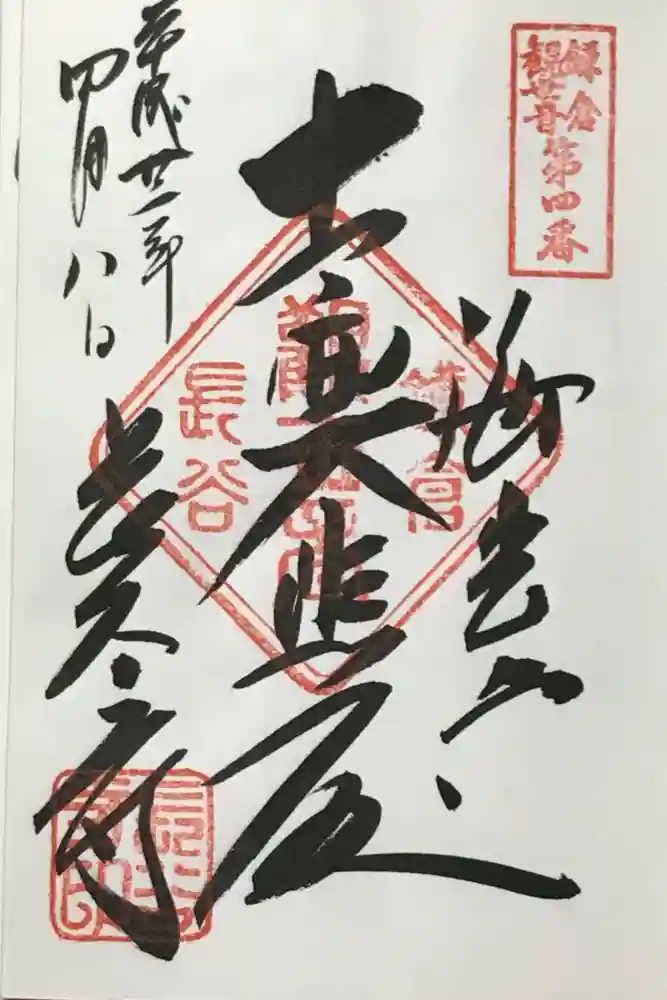 鎌倉
観世音
第四番
海光山
十一面大悲殿
長谷寺
平成廿二年
四月八日
鎌倉
長谷